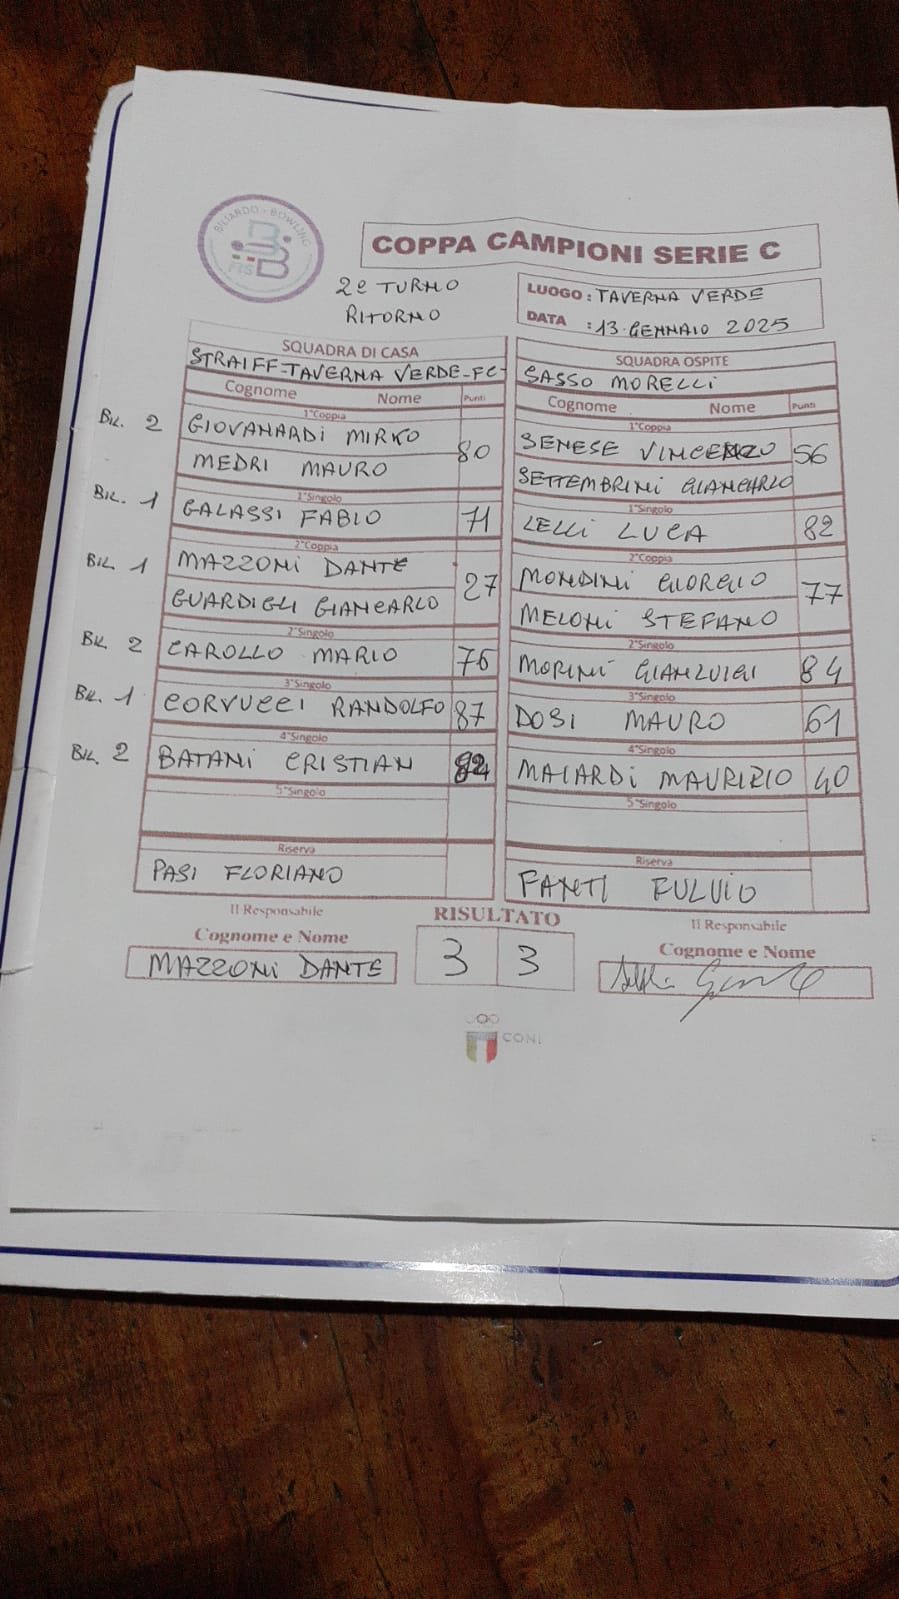 BILIARDO - BOWLING
COPPA CAMPIONI SERIE C
2º TURNO
RITORNO
LUOGO : TAVERNA VERDE
DATA : 13 GENNAIO 2025
SQUADRA DI CASA
STRAIFF-TAVERNA VERDE-FC-
Cognome Nome Punti
1°Coppia
BIL. 2 GIOVANARDI MIRKO 80
MEDRI MAURO
1°Singolo
BIL. 1 GALASSI FABIO 71
2°Coppia
BIL 1 MAZZONI DANTE 27
GUARDIGLI GIANCARLO
2°Singolo
BIL. 2 CAROLLO MARIO 76
3°Singolo
BIL. 1 CORVUCCI RANDOLFO 87
4°Singolo
BIL. 2 BATANI CRISTIAN
5°Singolo
Riserva
PASI FLORIANO
SQUADRA OSPITE
SASSO MORELLI
Cognome Nome Punti
1°Coppia
SENESE VINCENZO 56
SETTEMBRINI GIANCARLO
1°Singolo
LELLI LUCA 82
2°Coppia
MONDINI GIORGIO 77
MELONI STEFANO
2°Singolo
MORINI GIANLUIGI 84
3°Singolo
DOSI MAURO 61
4°Singolo
MAIARDI MAURIZIO 40
5°Singolo
Riserva
FANTI FULVIO
Il Responsabile
Cognome e Nome
MAZZONI DANTE
RISULTATO
3 3
Il Responsabile
Cognome e Nome
CONI